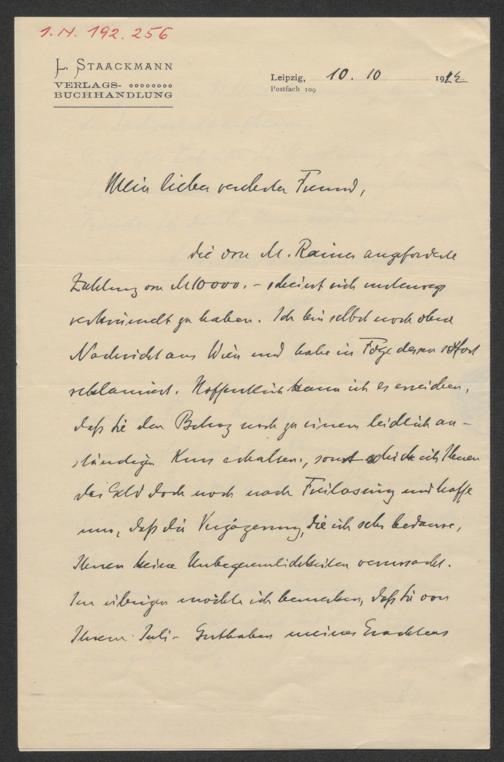 I.N. 192.256
L. STAACKMANN
VERLAGS-
BUCHHANDLUNG
Leipzig, 10. 10 19
Postfach 109
Mein lieber verehrter Freund,
die von M. Rainer angeforderte
Zahlung von M 10000.– scheint sich unterwegs
verkrümelt zu haben. Ich bin selbst noch ohne
Nachricht aus Wien und habe in Folge dessen sofort
reklamiert. Hoffentlich kann ich es erreichen,
daß Sie den Betrag noch zu einem leidlich an-
ständigen Kurs erhalten, sonst schicke ich Ihnen
das Geld doch noch nach Freilassing und hoffe
nur, daß die Verzögerung, die ich sehr bedaure,
Ihnen keine Unbequemlichkeiten verursacht.
Im übrigen möchte ich bemerken, daß Sie von
Ihrem Juli-Guthaben meines Erachtens